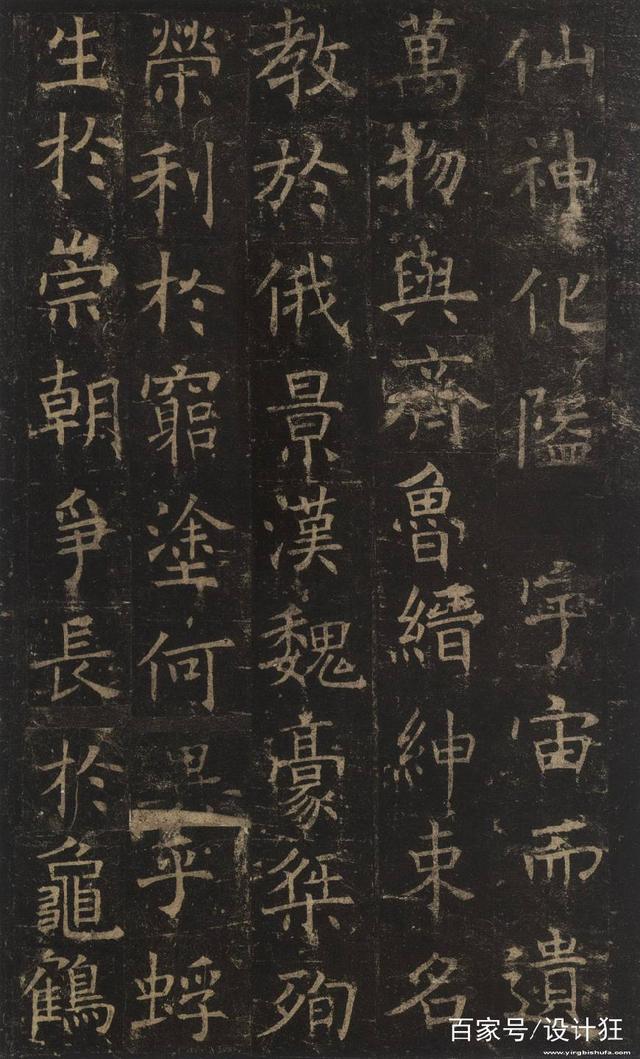 仙神化隘宇宙而遺
萬物與齊魯縉紳束名
教於俄景漢魏豪桀殉
榮利於窮塗何異乎蜉
生於崇朝爭長於龜鶴
百家号/设计狂
www.yingbishufa.com